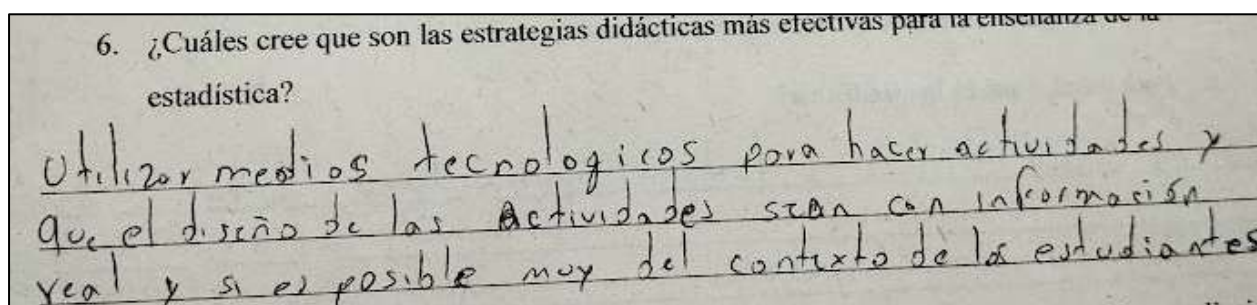 6. ¿Cuáles cree que son las estrategias didácticas más efectivas para la enseñanza de la
estadística?
Utilizar medios tecnologicos para hacer actividades y
que el diseño de las Actividades sean con información
real y si es posible muy del contexto de los estudiantes